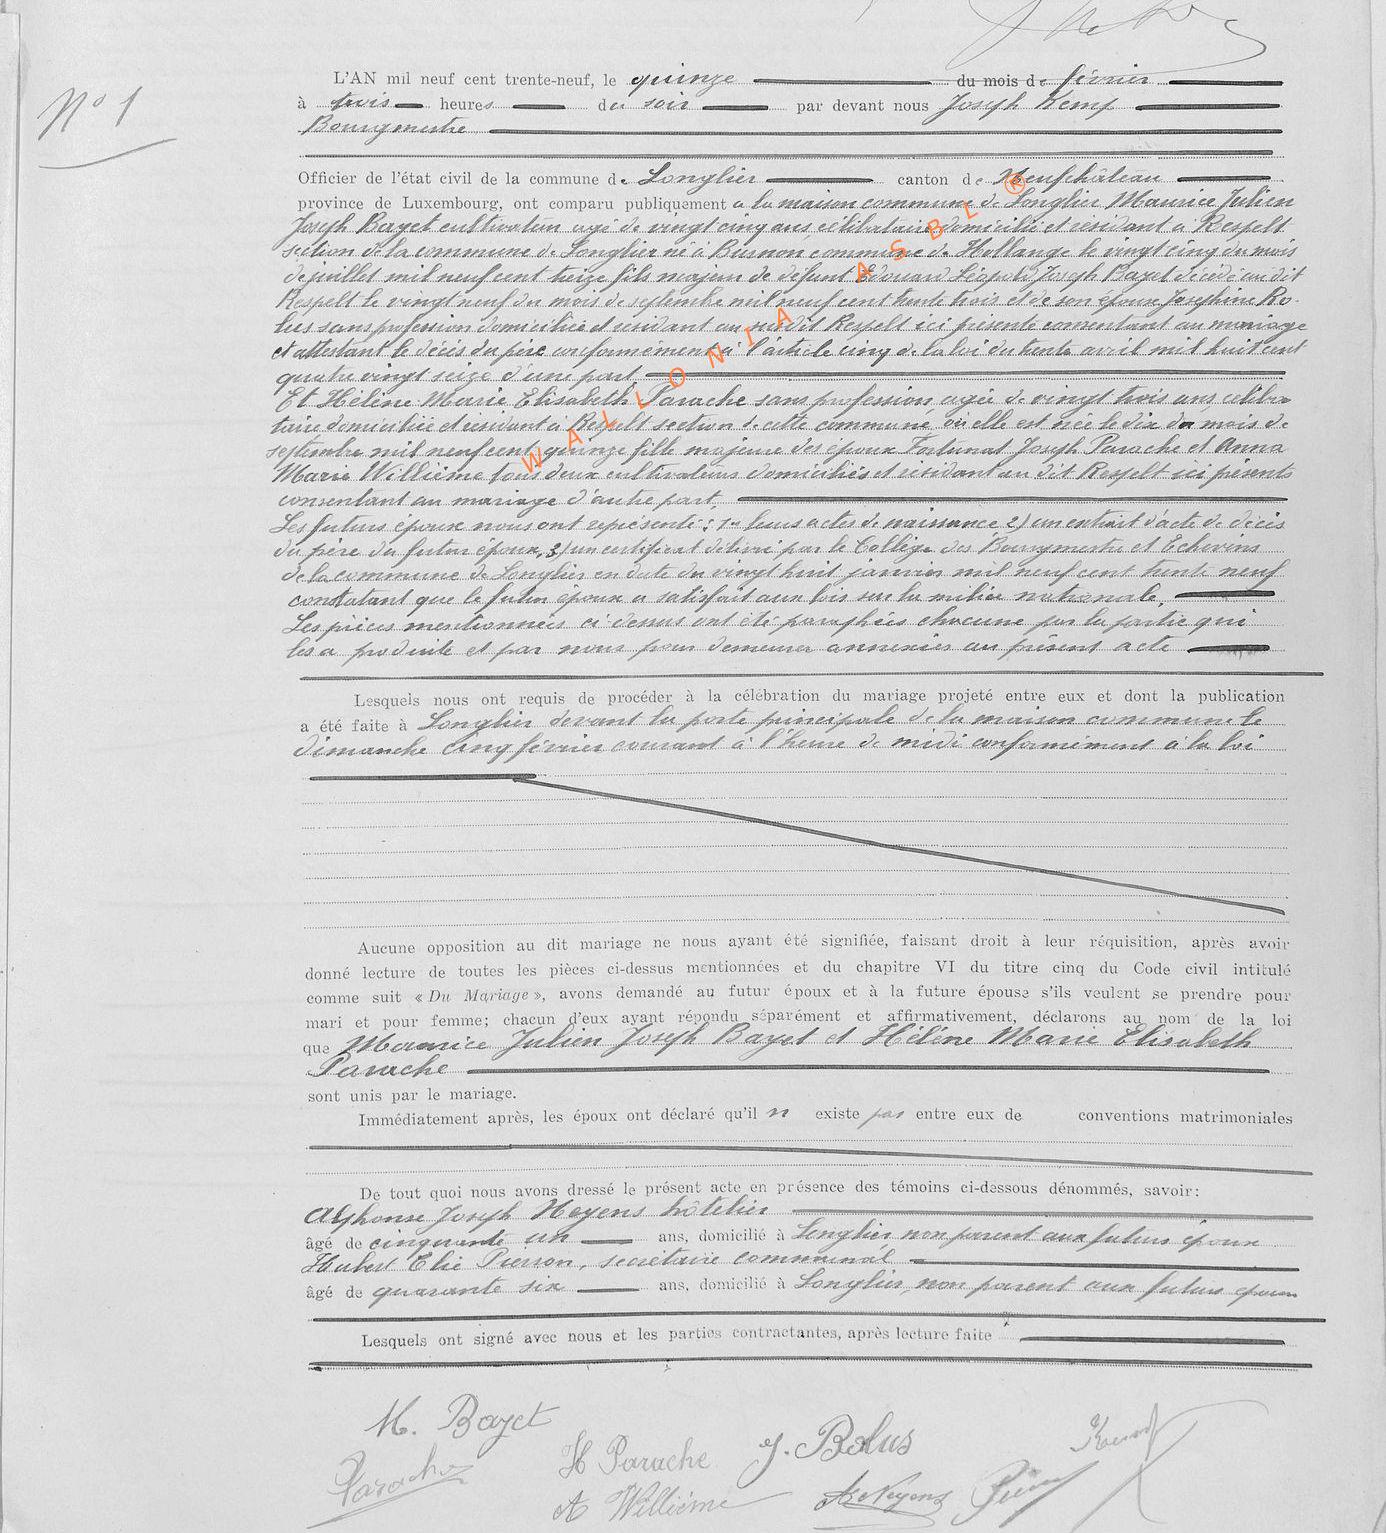 N° 1
L'AN mil neuf cent trente-neuf, le quinze du mois de février
à trois heures du soir par devant nous Joseph Kemp
Bourgmestre
Officier de l'état civil de la commune de Longlier canton de Neufchâteau
province de Luxembourg, ont comparu publiquement a la maison commune de Longlier Maurice Julien
Joseph Bayet cultivateur agé de vingt cinq ans, célibataire domicilié et résidant à Respelt
section de la commune de Longlier né à Burnon commune de Hollange le vingt cinq du mois
de juillet mil neuf cent treize fils majeur de défunt Edouard Léopold Joseph Bayet décédé au dit
Respelt le vingt neuf du mois de septembre mil neuf cent trente trois et de son épouse Joséphine Bo-
lus sans profession domiciliée et résidant au susdit Respelt ici présente consentant au mariage
et attestant le décès du père conformément à l'article cinq de la loi du trente avril mil huit cent
quatre vingt seize d'une part,
Et Hélène Marie Elisabeth Parache sans profession, agée de vingt trois ans, céliba
taire domiciliée et résidant à Respelt section de cette commune, où elle est née le dix du mois de
septembre mil neuf cent quinze fille majeure des époux Fortunat Joseph Parache et Anna
Marie Willième tous deux cultivateurs domiciliés et résidant au dit Respelt ici présents
consentant au mariage d'autre part,
Les futurs époux nous ont représenté : 1° leurs actes de naissance 2) un extrait d'acte de décès
du père du futur époux, 3) un certificat délivré par le Collège des Bourgmestre et Echevins
de la commune de Longlier en date du vingt huit janvier mil neuf cent trente neuf
constatant que le futur époux a satisfait aux lois sur la milice nationale,
Les pièces mentionnées ci-dessus ont été paraphées chacune par la partie qui
les a produite et par nous pour demeurer annexées au présent acte
Lesquels nous ont requis de procéder à la célébration du mariage projeté entre eux et dont la publication
a été faite à Longlier devant la porte principale de la maison commune le
dimanche cinq février courant à l'heure de midi conformément à la loi
Aucune opposition au dit mariage ne nous ayant été signifiée, faisant droit à leur réquisition, après avoir
donné lecture de toutes les pièces ci-dessus mentionnées et du chapitre VI du titre cinq du Code civil intitulé
comme suit « Du Mariage », avons demandé au futur époux et à la future épouse s'ils veulent se prendre pour
mari et pour femme; chacun d'eux ayant répondu séparément et affirmativement, déclarons au nom de la loi
que Maurice Julien Joseph Bayet et Hélène Marie Elisabeth
Parache
sont unis par le mariage.
Immédiatement après, les époux ont déclaré qu'il n existe pas entre eux de conventions matrimoniales
De tout quoi nous avons dressé le présent acte en présence des témoins ci-dessous dénommés, savoir:
Alphonse Joseph Noyens hôtelier
âgé de cinquante un ans, domicilié à Longlier, non parent aux futurs époux
Hubert Elie Pierson, secrétaire communal
âgé de quarante six ans, domicilié à Longlier, non parent aux futurs époux
Lesquels ont signé avec nous et les parties contractantes, après lecture faite
M. Bayet
Parache
H Parache
J. Bolus
A Willième
WALLONIA ASBL ®